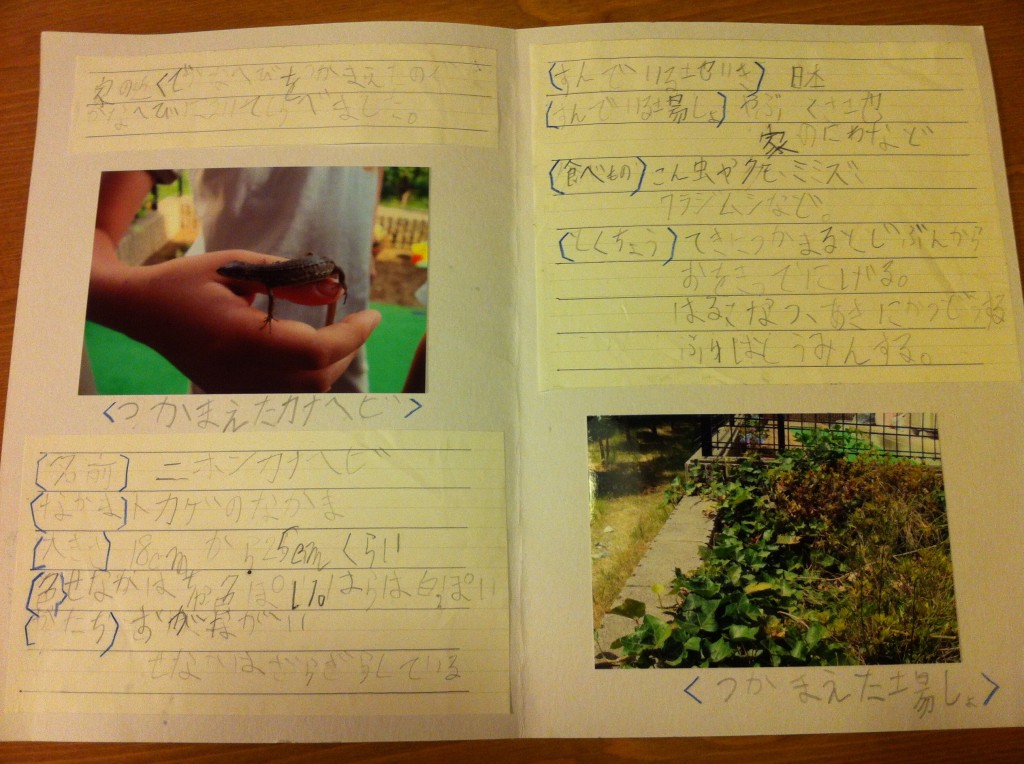 家の近くでかなへびをつかまえたので
かなへびについてしらべました。
<つかまえたカナヘビ>
[名前] ニホンカナヘビ
[なかま] トカゲのなかま
[大きさ] 18cmから25cmくらい
[色] せなかは ちゃ色っぽい はらは白っぽい
[かたち] おがながい
せなかはざらざらしている
[すんでいる地いき] 日本
[すんでいる場しょ] やぶ くさ土也
家のにわなど
[食べもの] こん虫やクモ、ミミズ、
ワラジムシなど。
[とくちょう] てきにつかまるとじぶんから
おをきってにげる。
はる、なつ、あきにかつどうする
ふゆはとうみんする。
<つかまえた場しょ>